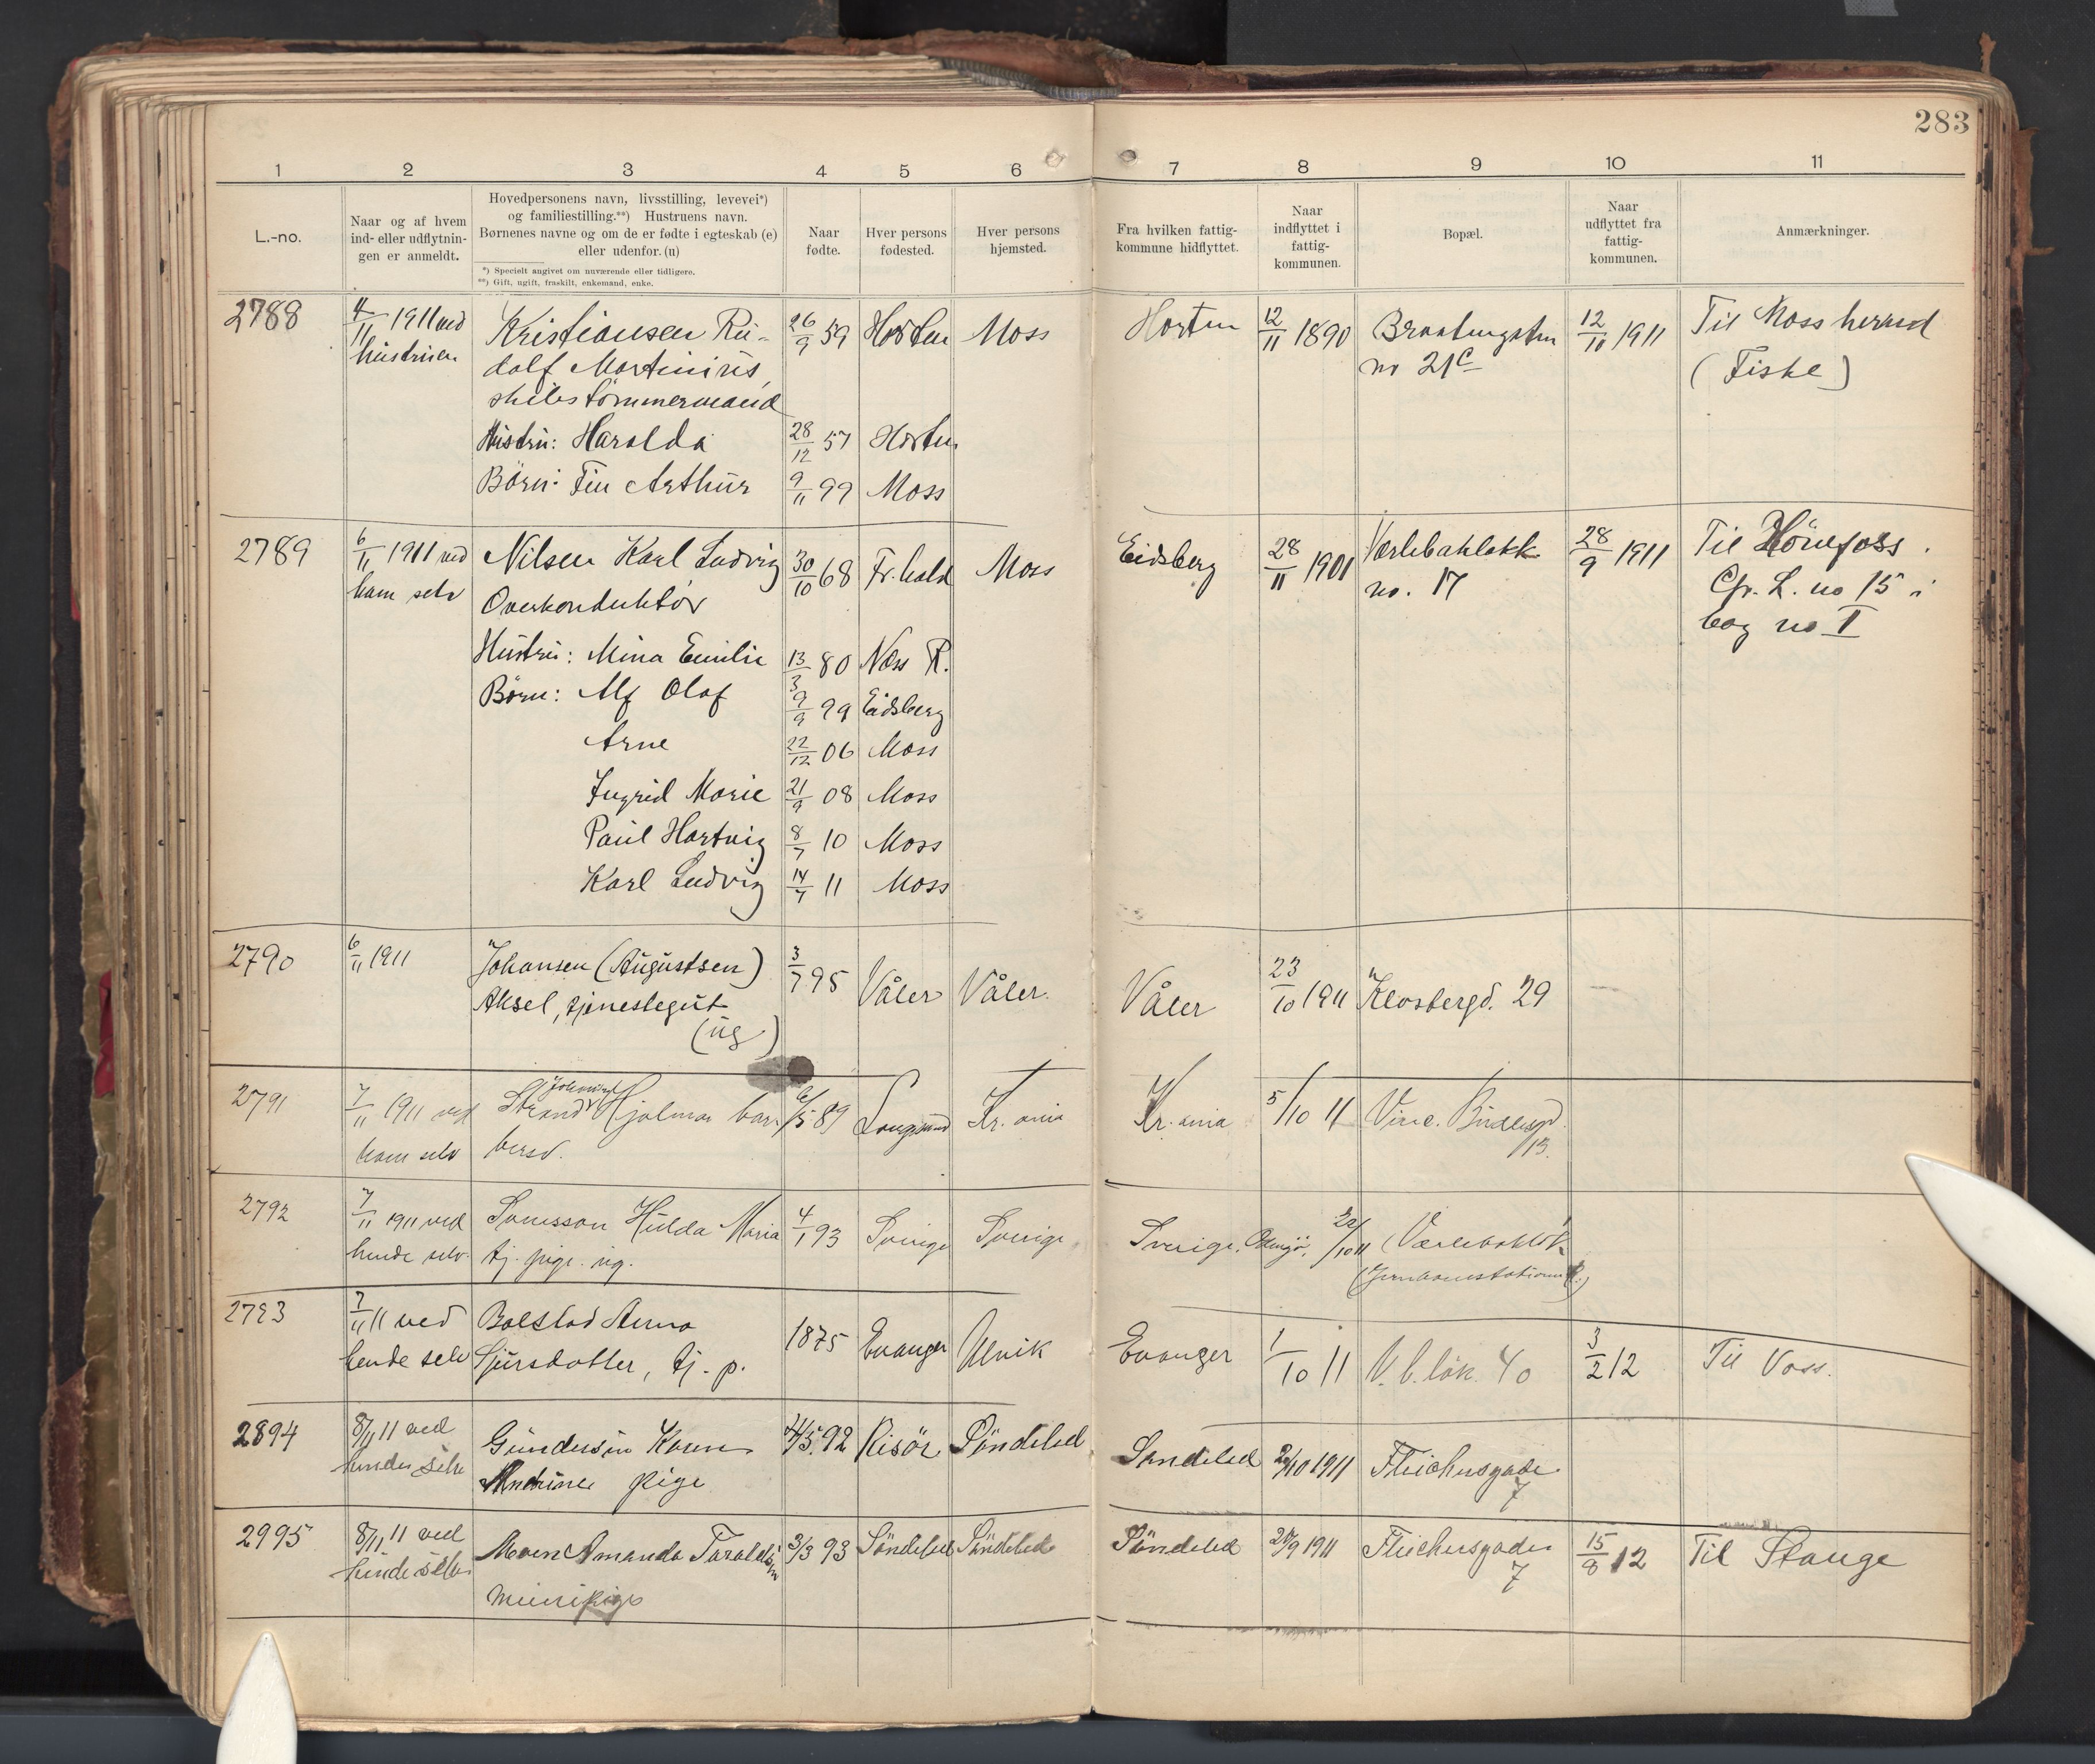 283
1 2 3 4 5 6 7 8 9 10 11
L.-no.
Naar og af hvem
ind- eller udflytnin-
gen er anmeldt.
Hovedpersonens navn, livsstilling, levevei*)
og familiestilling.**) Hustruens navn.
Børnenes navne og om de er fødte i egteskab (e)
eller udenfor. (u)
*) Specielt angivet om nuværende eller tidligere.
**) Gift, ugift, fraskilt, enkemand, enke.
Naar
fødte.
Hver persons
fødested.
Hver persons
hjemsted.
Fra hvilken fattig-
kommune hidflyttet.
Naar
indflyttet i
fattig-
kommunen.
Bopæl.
Naar
udflyttet fra
fattig-
kommunen.
Anmærkninger.
2788 4/11 1911 ved Kristiansen Ru- 26/9 59 Horten Moss Horten 12/11 1890 12/10 1911 Til Moss herred
hustruen dolf Martinius, no 21c (Fiske)
skibstømmermand
Hustru: Haralda 28/12 57 Horten
Børn: Fin Arthur 9/11 99 Moss
2789 6/11 1911 ved Nilsen Karl Ludvig 30/10 68 Fr.hald Moss Eidsberg 28/11 1901 Værlebakløkk. 28/9 1911 Til Hönefoss.
ham selv Overkonduktør no. 17 Cfr. L. no 15 i
bog no II
Hustru: Mina Emilie 13/3 80 Næs R.
Børn: Alf Olaf 9/9 99 Eidsberg
Arne 22/12 06 Moss
Ingrid Marie 21/9 08 Moss
Paul Hartvig 8/7 10 Moss
Karl Ludvig 14/7 11 Moss
2790 6/11 1911 Johansen (Augustsen) 3/7 95 Våler Våler. Våler 23/10 1911 Klosbergd. 29
Aksel, tjenestegut
(ug)
2791 7/11 1911 ved Strand Hjalmar bar- 6/5 89 Langesund Kr.ania Kr.ania 5/10 11 Vinc. Budesgd.
ham selv bersv. 13.
2792 7/11 1911 ved Svensson Hulda Maria 4/1 93 Sverige Sverige Sverige, 22/10 11 Værlebakløk
hende selv. tj. pige. ug. (Jernbanestationen)
2793 7/11 11 ved Bolstad Anna 1875 Evanger Ulvik Evanger 1/10 11 V.b.løk. 40 3/2 12 Til Voss.
hende selv Sjursdotter, tj. p.
2894 8/11 11 ved Gundersen Karen 24/5 92 Risör Söndeled Söndeled 2/10 1911 Fleichersgade
hende selv Andrine pige 7
2995 8/11 11 ved Moen Amanda Taraldsen 3/3 93 Söndeled Söndeled Söndeled 29/9 1911 Fleichersgade 15/8 12 Til Stange
hende selv 7
meieripige